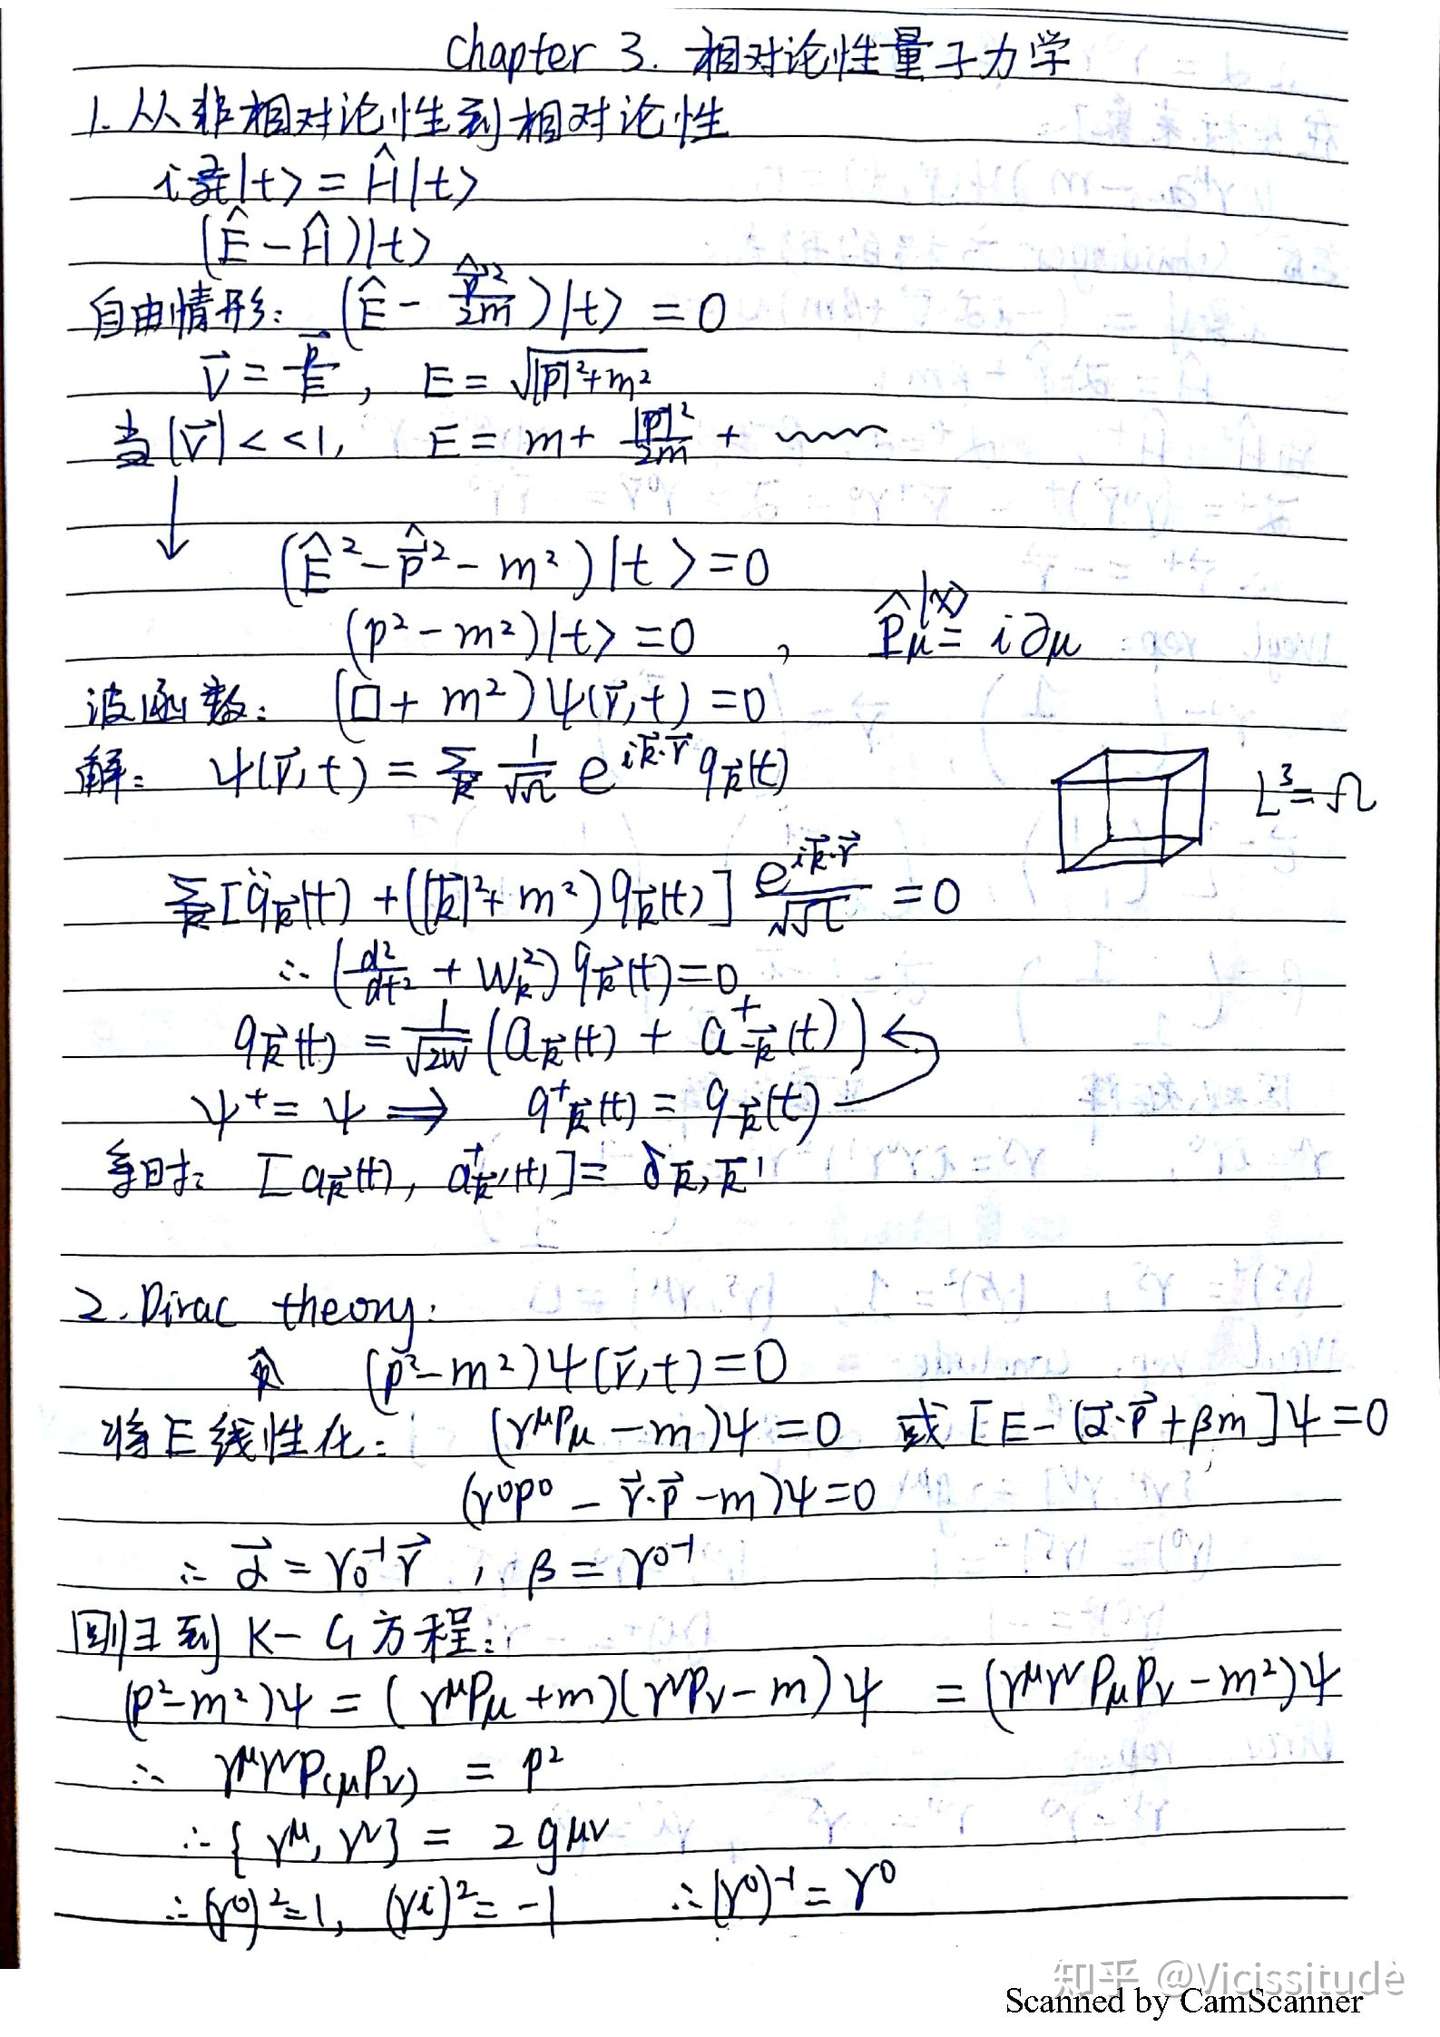 Chapter 3. 相对论性量子力学
1. 从非相对论性到相对论性
i ∂/∂t |t> = Ĥ|t>
(Ê - Ĥ)|t>
自由情形: (Ê - p̂²/2m)|t> = 0
v⃗ = p⃗/E, E = √(|p⃗|²+m²)
当|v⃗| << 1, E = m + |p⃗|²/2m + 
↓
(Ê² - p̂⃗² - m²)|t> = 0
(p² - m²)|t> = 0, P̂μ =^{|x>} i∂μ
波函数: (□ + m²)ψ(r⃗,t) = 0
解: ψ(r⃗,t) = Σ_k⃗ 1/√Ω e^{ik⃗·r⃗} q_k⃗(t)
L³ = Ω
Σ_k⃗ [q̈_k⃗(t) + (|k⃗|²+m²)q_k⃗(t)] e^{ik⃗·r⃗}/√Ω = 0
∴ (d²/dt² + W_k²) q_k⃗(t) = 0
q_k⃗(t) = 1/√2W (a_k⃗(t) + a⁺_-k⃗(t)) ←
ψ⁺ = ψ ⟹ q⁺_k⃗(t) = q_-k⃗(t)
等时: [a_k⃗(t), a⁺_k⃗'(t)] = δ_k⃗,k⃗'
2. Dirac theory:
(p² - m²)ψ(r⃗,t) = 0
将E线性化: (γ^μ P_μ - m)ψ = 0 或 [E - (α⃗·p⃗ + βm]ψ = 0
(γ⁰p⁰ - γ⃗·p⃗ - m)ψ = 0
∴ α⃗ = γ₀⁻¹γ⃗, β = γ⁰⁻¹
回归到 K-G方程:
(p²-m²)ψ = (γ^μ P_μ + m)(γ^ν P_ν - m)ψ = (γ^μ γ^ν P_μ P_ν - m²)ψ
∴ γ^μ γ^ν P_(μ P_ν) = p²
∴ {γ^μ, γ^ν} = 2g^μν
∴ (γ⁰)² = 1, (γ^i)² = -1 ∴ (γ⁰)⁻¹ = γ⁰
知乎 @Vicissitude
Scanned by CamScanner